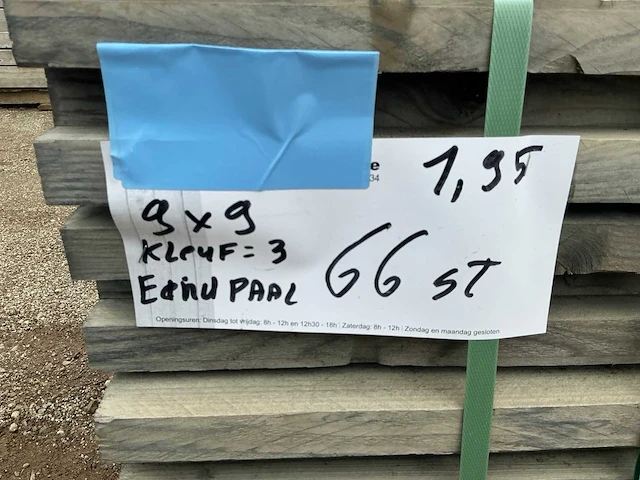 e
34
1,95
9 x 9
KLEUF = 3
EEIND PAAL
66 ST
Openingsuren: Dinsdag tot vrijdag: 8h - 12h en 12h30 - 18h | Zaterdag: 8h - 12h | Zondag en maandag gesloten